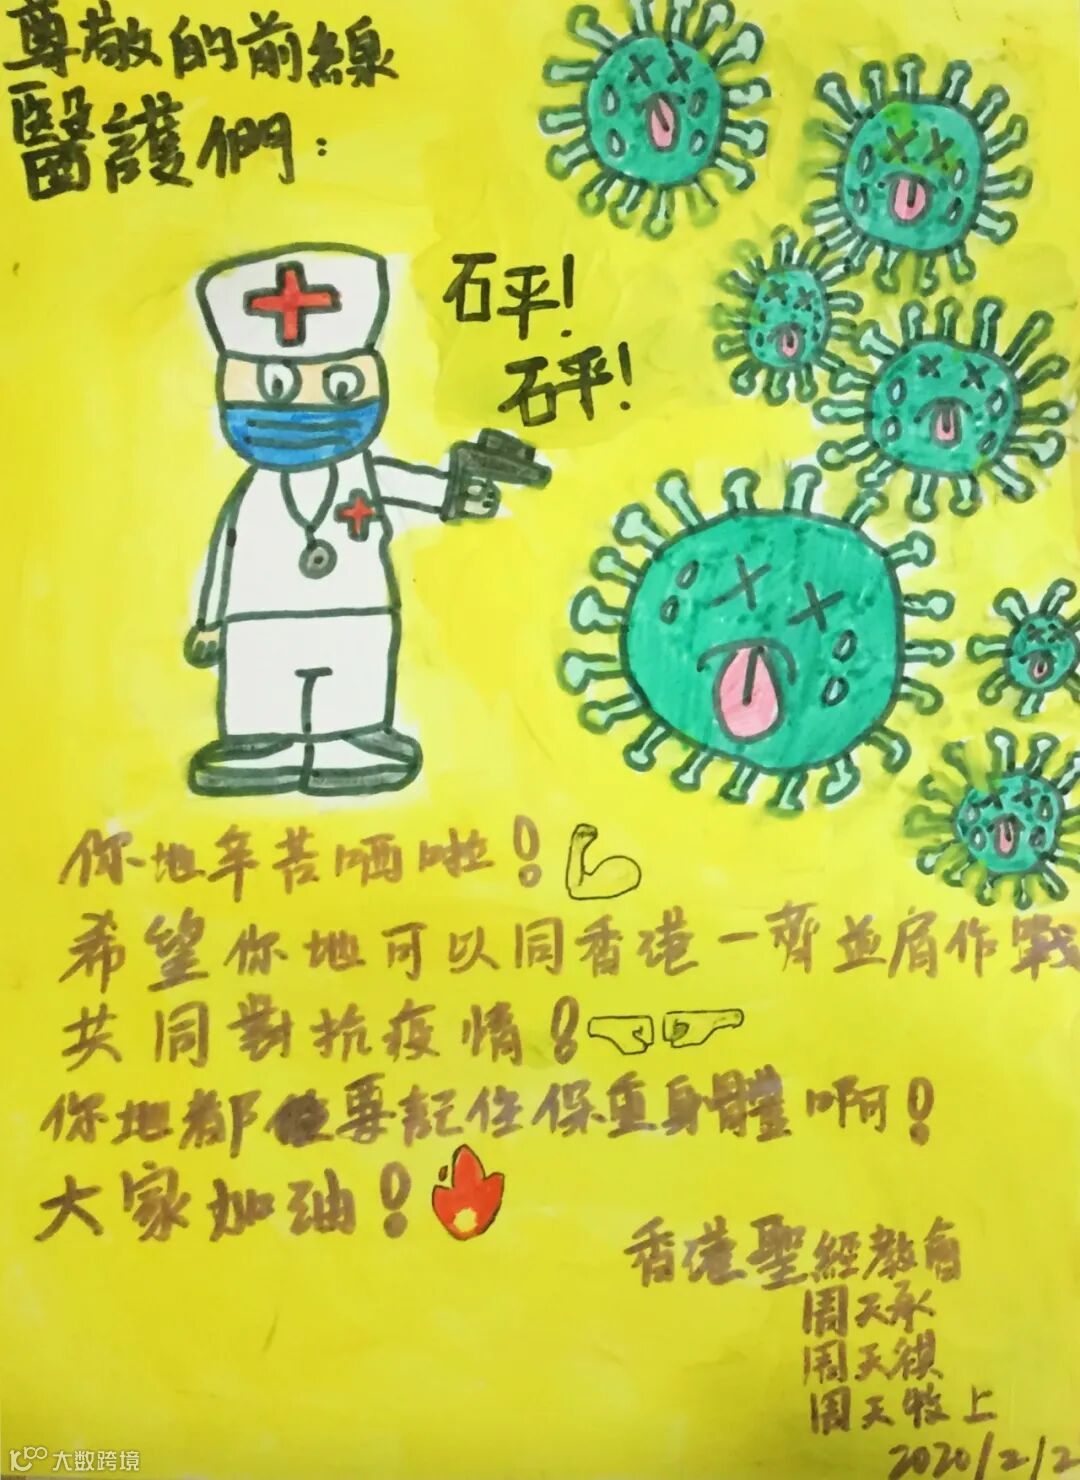 尊敬的前線
醫護們：
砰！
砰！
你地辛苦晒啦！
希望你地可以同香港一齊並肩作戰
共同對抗疫情！
你地都要記住保重身體啊！
大家加油！
香港聖經教會
周天承
周天祺
周天牧上
2020/2/2
大数跨境